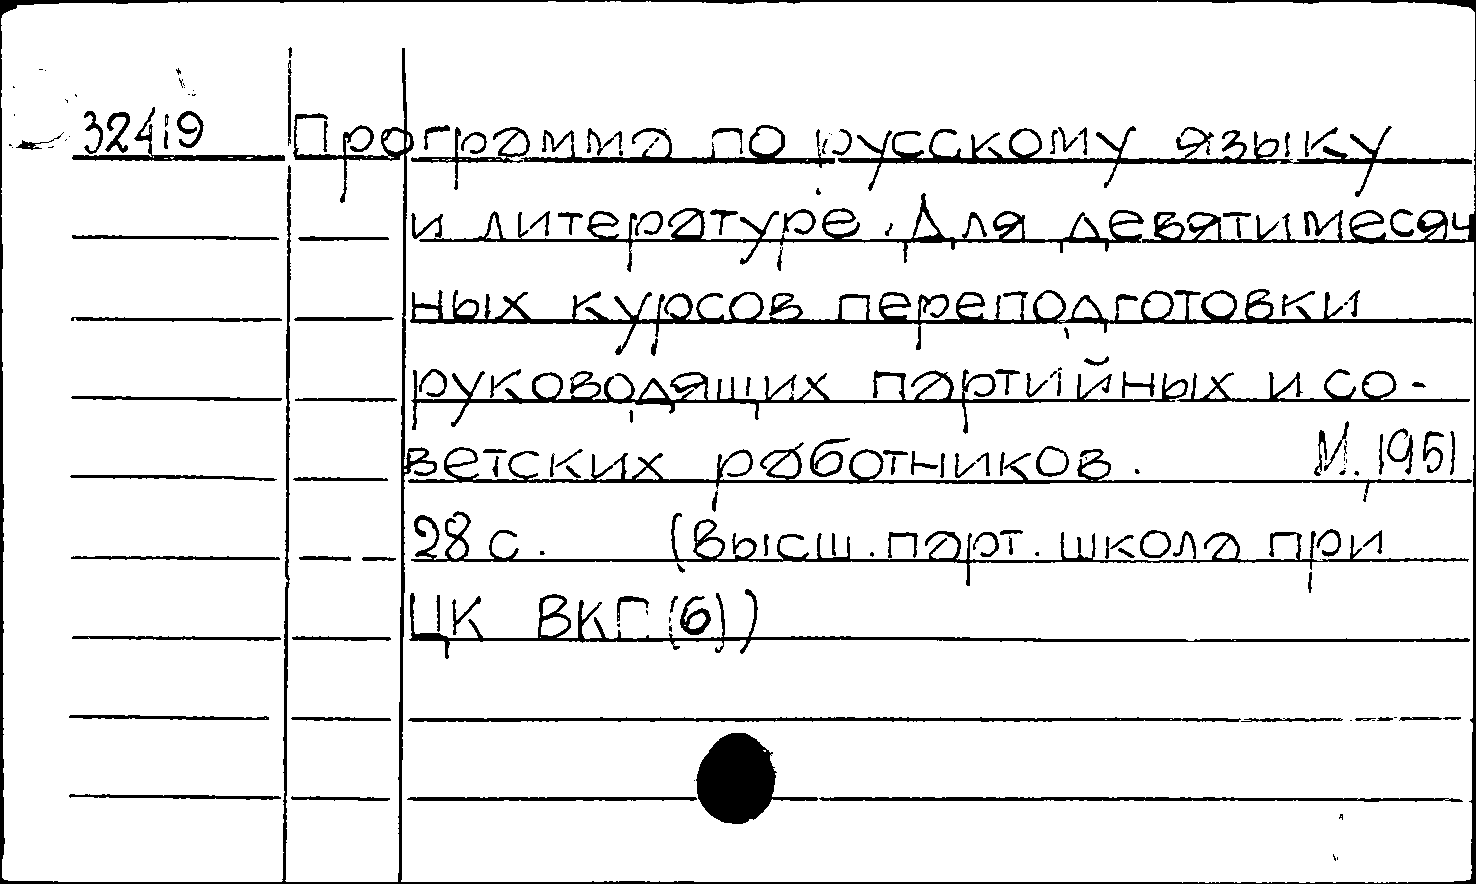 32419 Программа по русскому языку
и литературе. Для девятимесяч
ных курсов переподготовки
руководящих партийных и со-
ветских работников. М., 1951
28 с. (Высш. парт. школа при
ЦК ВКП(б))